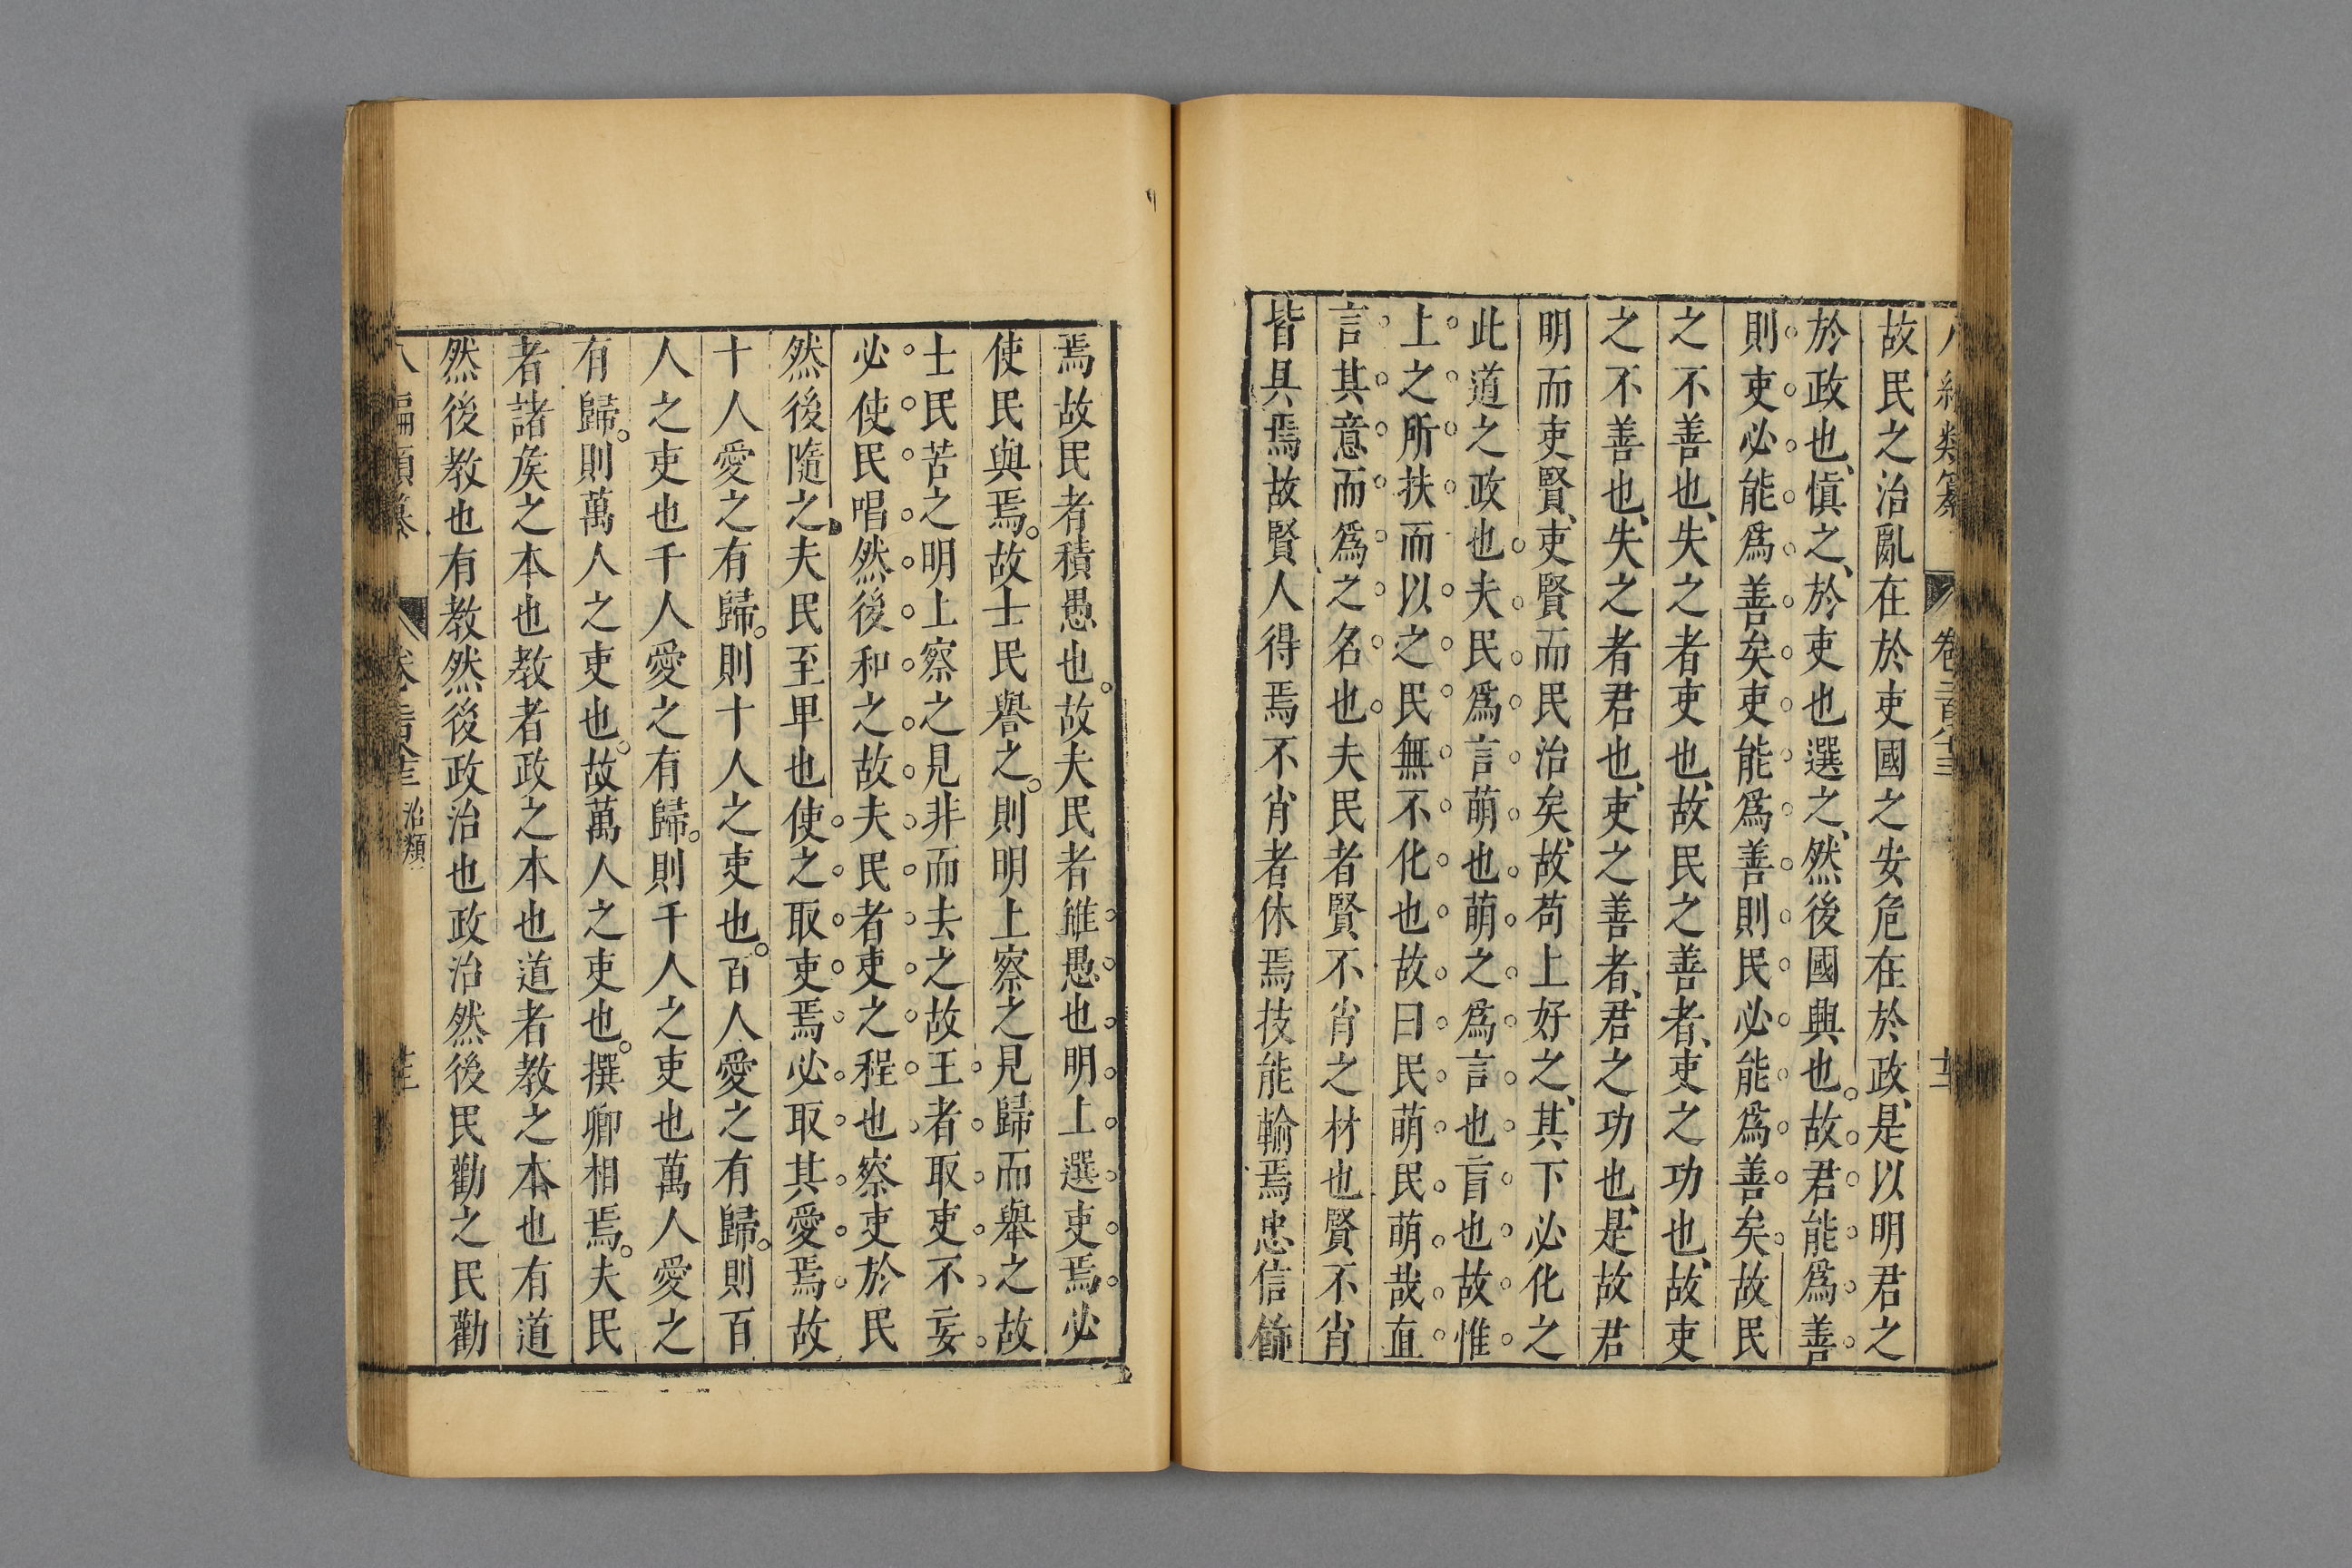 故民之治亂在於吏國之安危在於政、是以明君之
於政也、慎之、於吏也選之、然後國興也。故君能爲善
則吏必能爲善矣吏能爲善則民必能爲善矣故民
之不善也、失之者吏也、故民之善者、吏之功也、故吏
之不善也、失之者君也、吏之善者、君之功也、是故君
明而吏賢、吏賢而民治矣、故苟上好之、其下必化之
此道之政也夫民爲言萌也萌之爲言也盲也故惟
上之所扶而以之民無不化也故曰民萌民萌哉直
言其意而爲之名也夫民者賢不肖之材也賢不肖
皆具焉故賢人得焉不肖者休焉技能輸焉忠信飾
焉故民者積愚也。故夫民者雖愚也明上選吏焉必
使民與焉。故士民譽之。則明上察之見歸而舉之故
士民苦之明上察之見非而去之故王者取吏不妄
必使民唱然後和之故夫民者吏之程也察吏於民
然後隨之夫民至卑也使之取吏焉必取其愛焉故
十人愛之有歸。則十人之吏也。百人愛之有歸。則百
人之吏也千人愛之有歸。則千人之吏也萬人愛之
有歸。則萬人之吏也。故萬人之吏也。撰卿相焉。夫民
者諸矦之本也教者政之本也道者教之本也有道
然後教也有教然後政治也政治然後民勸之民勸
治類